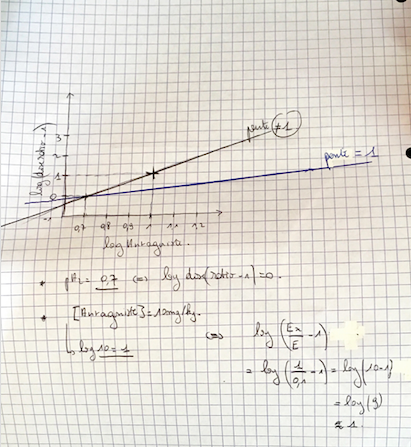 pente ≠ 1
pente = 1
log(dose ratio - 1)
3
2
1
0
-1
0,7 0,8 0,9 1 1,1 1,2
log Antagoniste.
• pA₂ = 0,7 <=> log dose(ratio - 1) = 0.
• [Antagoniste] = 10mg/kg.
↳ log 10 = 1
<=> log (Ex/E - 1)
= log (1/0,1 - 1) = log(10-1)
= log(9)
≈ 1